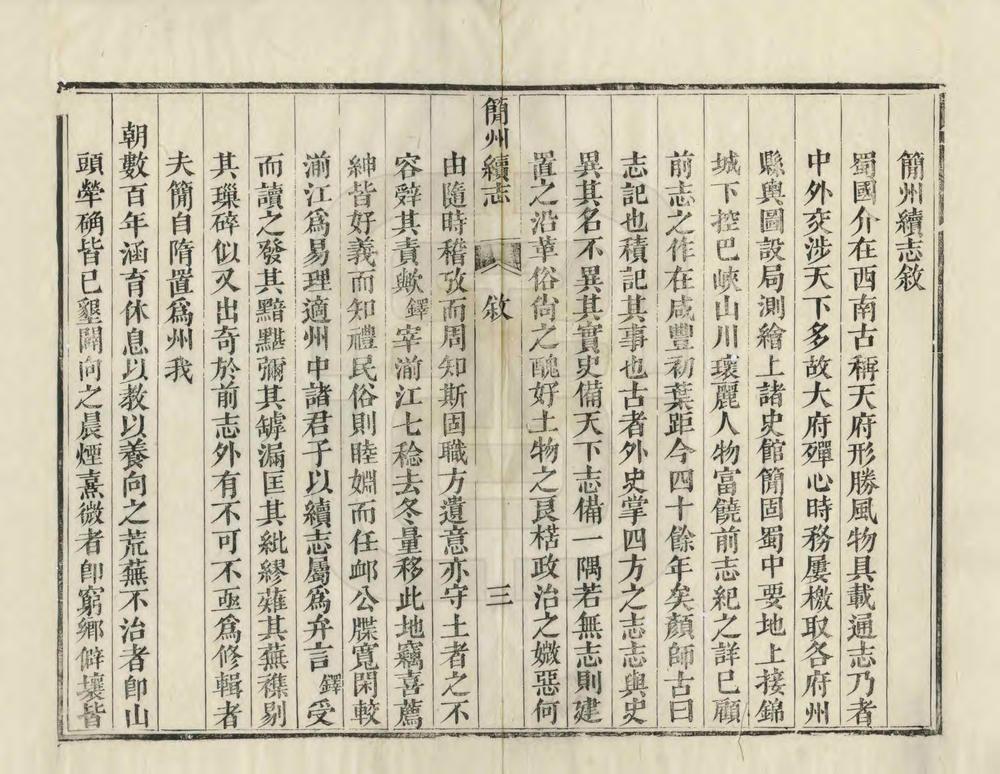 簡州續志敘
蜀國介在西南古稱天府形勝風物具載通志乃者
中外交涉天下多故大府殫心時務屢檄取各府州
縣輿圖設局測繪上諸史館簡固蜀中要地上接錦
城下控巴峽山川瓌麗人物富饒前志紀之詳已顧
前志之作在咸豐初葉距今四十餘年矣顏師古曰
志記也積記其事也古者外史掌四方之志志與史
異其名不異其實史備天下志備一隅若無志則建
置之沿革俗尚之醜好土物之良楛政治之媺惡何
簡州續志 敘 三
由隨時稽攷而周知斯固職方遺意亦守土者之不
容辭其責歟鐸宰湔江七稔去冬量移此地竊喜薦
紳皆好義而知禮民俗則睦婣而任卹公牒寬閑較
湔江爲易理適州中諸君子以續志屬爲弁言鐸受
而讀之發其黯黮彌其罅漏匡其紕繆薙其蕪穢剔
其璅碎似又出奇於前志外有不可不亟爲修輯者
夫簡自隋置爲州我
朝數百年涵育休息以教以養向之荒蕪不治者卽山
頭犖确皆已墾闢向之晨煙熹微者卽窮鄉僻壤皆